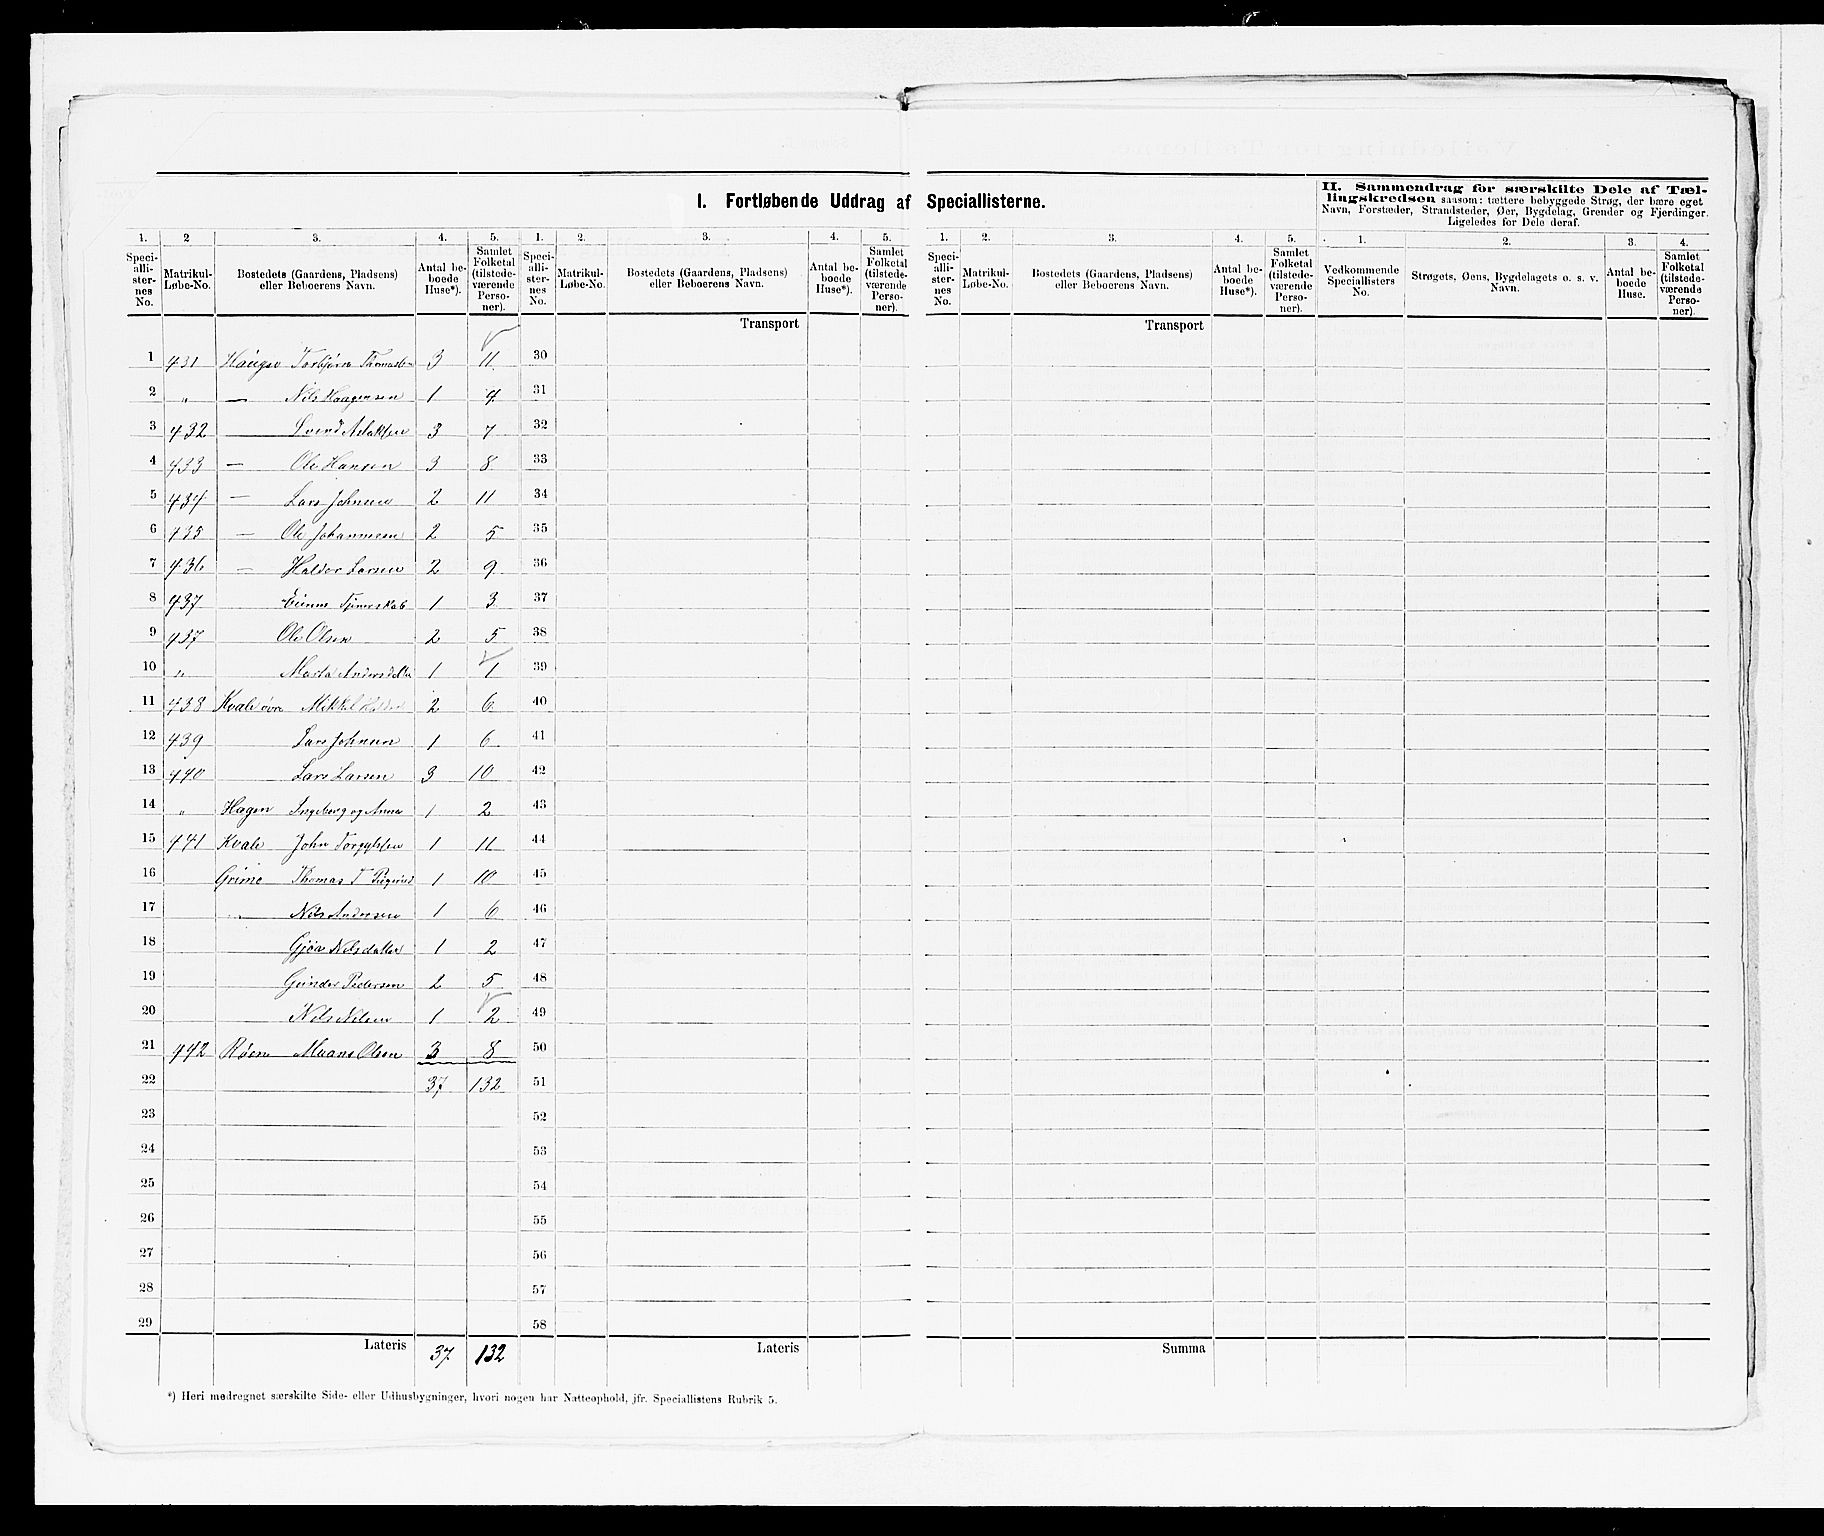 I. Fortløbende Uddrag af Speciallisterne.
II. Sammendrag for særskilte Dele af Tæl-
lingskredsen saasom: tættere bebyggede Strøg, der bære eget
Navn, Forstæder, Strandsteder, Øer, Bygdelag, Grender og Fjerdinger.
Ligeledes for Dele deraf.
1. 2 3. 4. 5. 1. 2. 3. 4. 5. 1. 2. 3. 4. 5. 1. 2. 3. 4.
Speci-alli-ster-nes No. Matrikul-Løbe-No. Bostedets (Gaardens, Pladsens) eller Beboerens Navn. Antal be-boede Huse*). Samlet Folketal (tilstede-værende Perso-ner).
Speci-alli-ster-nes No. Matrikul-Løbe-No. Bostedets (Gaardens, Pladsens) eller Beboerens Navn. Antal be-boede Huse*). Samlet Folketal (tilstede-værende Perso-ner).
Speci-alli-ster-nes No. Matrikul-Løbe-No. Bostedets (Gaardens, Pladsens) eller Beboerens Navn. Antal be-boede Huse*). Samlet Folketal (tilstede-værende Perso-ner).
Vedkommende Speciallisters No. Strøgets, Øens, Bygdelagets o. s. v. Navn. Antal be-boede Huse. Samlet Folketal (tilstede-værende Perso-ner).
Transport Transport
1 431 Torbjörn 3 11 30
2 " — Nils Haagensen 1 31
3 432 — Svend Aslaksen 3 7 32
4 433 — Ole Hansen 3 8 33
5 434 — Lars Johnsen 2 11 34
6 435 — Ole Johannesen 2 5 35
7 436 — Haldor Larsen 2 9 36
8 437 1 3 37
9 437 Ole Olsen 2 5 38
10 " Marta Andersdatter 1 1 39
11 438 Kvale øvre Mikkel 2 6 40
12 439 Lars Johnsen 1 6 41
13 440 Lars Larsen 3 10 42
14 " Hagen Ingeborg og Anna 1 2 43
15 441 Kvale John 1 11 44
16 Grime Thomas T 1 10 45
17 " Nils Andersen 1 6 46
18 Gjøa Nilsdatter 1 2 47
19 Pedersen 2 5 48
20 Nils Nilsen 1 2 49
21 442 Maans Olsen 3 8 50
22 37 132 51
23 52
24 53
25 54
26 55
27 56
28 57
29 58
Lateris 37 132 Lateris Summa
*) Heri medregnet særskilte Side- eller Udhusbygninger, hvori nogen har Natteophold, jfr. Speciallistens Rubrik 5.